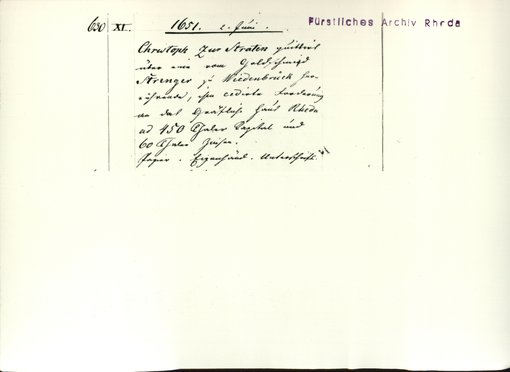 650 XI. 1651. 2. Juni. Fürstliches Archiv Rheda
Christoph Zur Straten quittirt
über eine vom Goldschmied
Strenger zu Wiedenbrück her-
rührende, ihm cedirte Forderung
an das Gräfliche Haus Rheda
ad 450 Thaler Capital und
60 Thaler Zinsen.
Papier. Eigenhänd. Unterschrift.